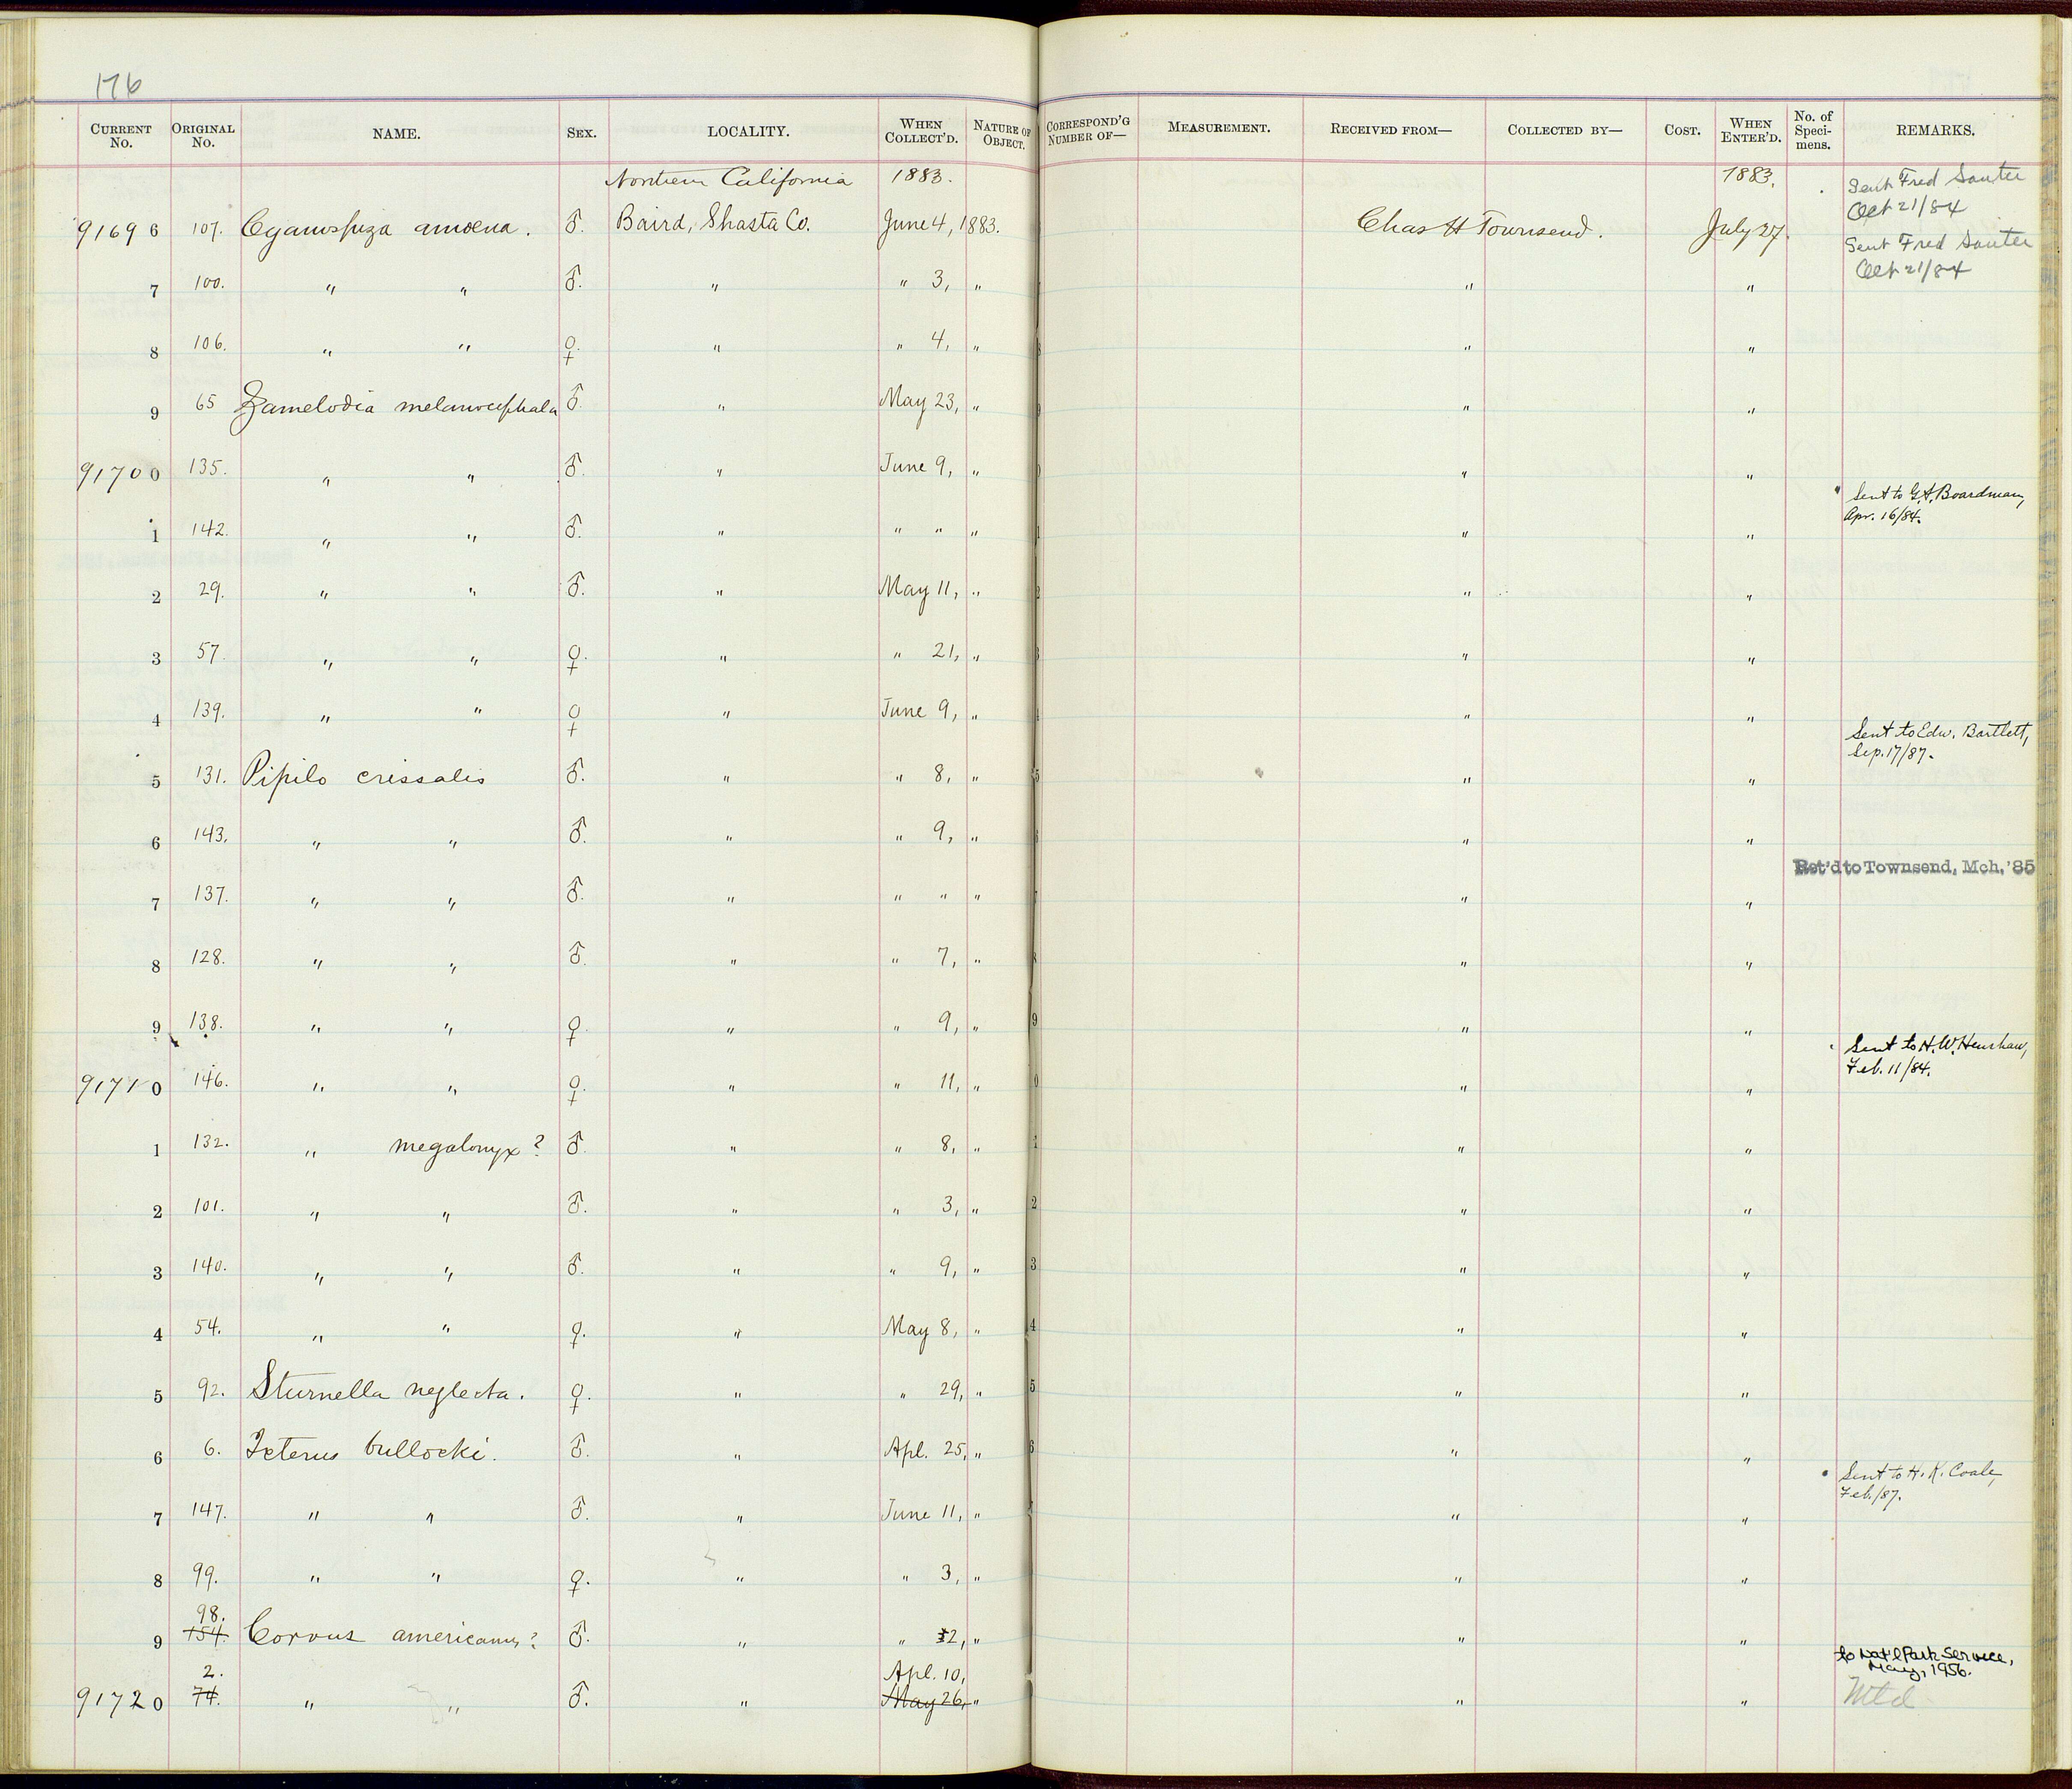 176
CURRENT No. ORIGINAL No. NAME. SEX. LOCALITY. WHEN COLLECT'D. NATURE OF OBJECT. CORRESPOND'G NUMBER OF— MEASUREMENT. RECEIVED FROM— COLLECTED BY— COST. WHEN ENTER'D. No. of Speci-mens. REMARKS.
Northern California 1883. 1883. Sent Fred Sauter Oct 21/84
91696 107. Cyanospiza amoena. ♂. Baird, Shasta Co. June 4, 1883. Chas H Townsend. July 27. Sent Fred Sauter Oct 21/84
7 100. " " ♂. " " 3, " " "
8 106. " " ♀. " " 4, " " "
9 65 Zamelodia melanocephala ♂. " May 23, " " "
91700 135. " " ♂. " June 9, " " "
1 142. " " ♂. " " " " " " Sent to G.A. Boardman, Apr. 16/84.
2 29. " " ♂. " May 11, " " "
3 57. " " ♀. " " 21, " " "
4 139. " " ♀ " June 9, " " "
5 131. Pipilo crissalis ♂. " " 8, " " " Sent to Edw. Bartlett, Sep. 17/87.
6 143. " " ♂. " " 9, " " "
7 137. " " ♂. " " " " " " Ret'd to Townsend, Mch, '85
8 128. " " ♂. " " 7, " " "
9 138. " " ♀. " " 9, " " "
91710 146. " " ♀. " " 11, " " " Sent to H. W. Henshaw, Feb. 11/84.
1 132. " megalonyx? ♂. " " 8, " " "
2 101. " " ♂. " " 3, " " "
3 140. " " ♂. " " 9, " " "
4 54. " " ♀. " May 8, " " "
5 92. Sturnella neglecta. ♀. " " 29, " " "
6 6. Icterus bullocki. ♂. " Apl. 25, " " "
7 147. " " ♂. " June 11, " " " Sent to H. K. Coale, Feb./87.
8 99. " " ♀. " " 3, " " "
98.
9 154. Corvus americanus? ♂. " " 2, " " "
2. Apl. 10, to Nat'l Park Service, May, 1956.
91720 74. " " ♂. " May 26, " " " Mtd